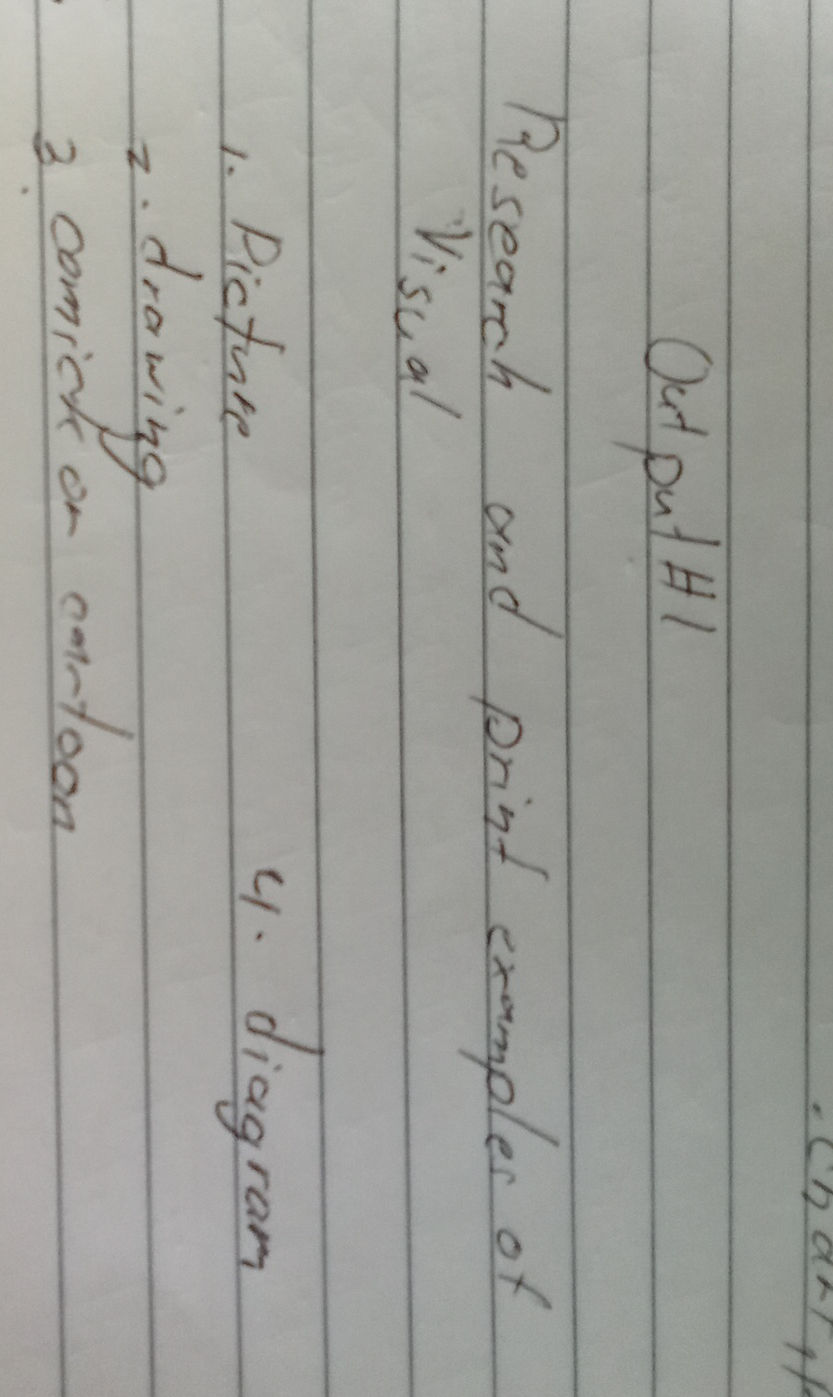 . Chart
Output #1
Research and print examples of
Visual
1. Picture 4. diagram
2. drawing
3 comick or cartoon